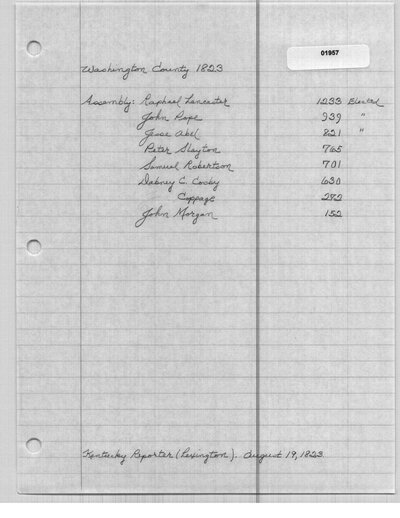 01957
Washington County 1823
Assembly: Raphael Lancaster 1233 Elected
John Pope 939 "
Jesse Abel 821 "
Peter Slayton 765
Samuel Robertson 701
Dabney C. Cosby 630
Coppage 272
John Morgan 152
Kentucky Reporter (Lexington). August 19, 1823.